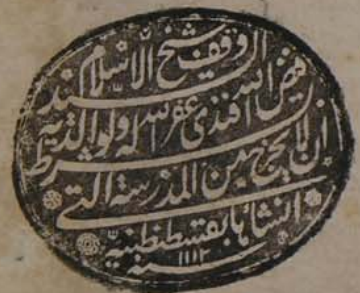 وقف شيخ الاسلام
السيد فيض الله افندى غفر الله له ولوالديه
بشرط ان لا يخرج من المدرسة التى
انشأها بقسطنطينية
سنة ١١١٢